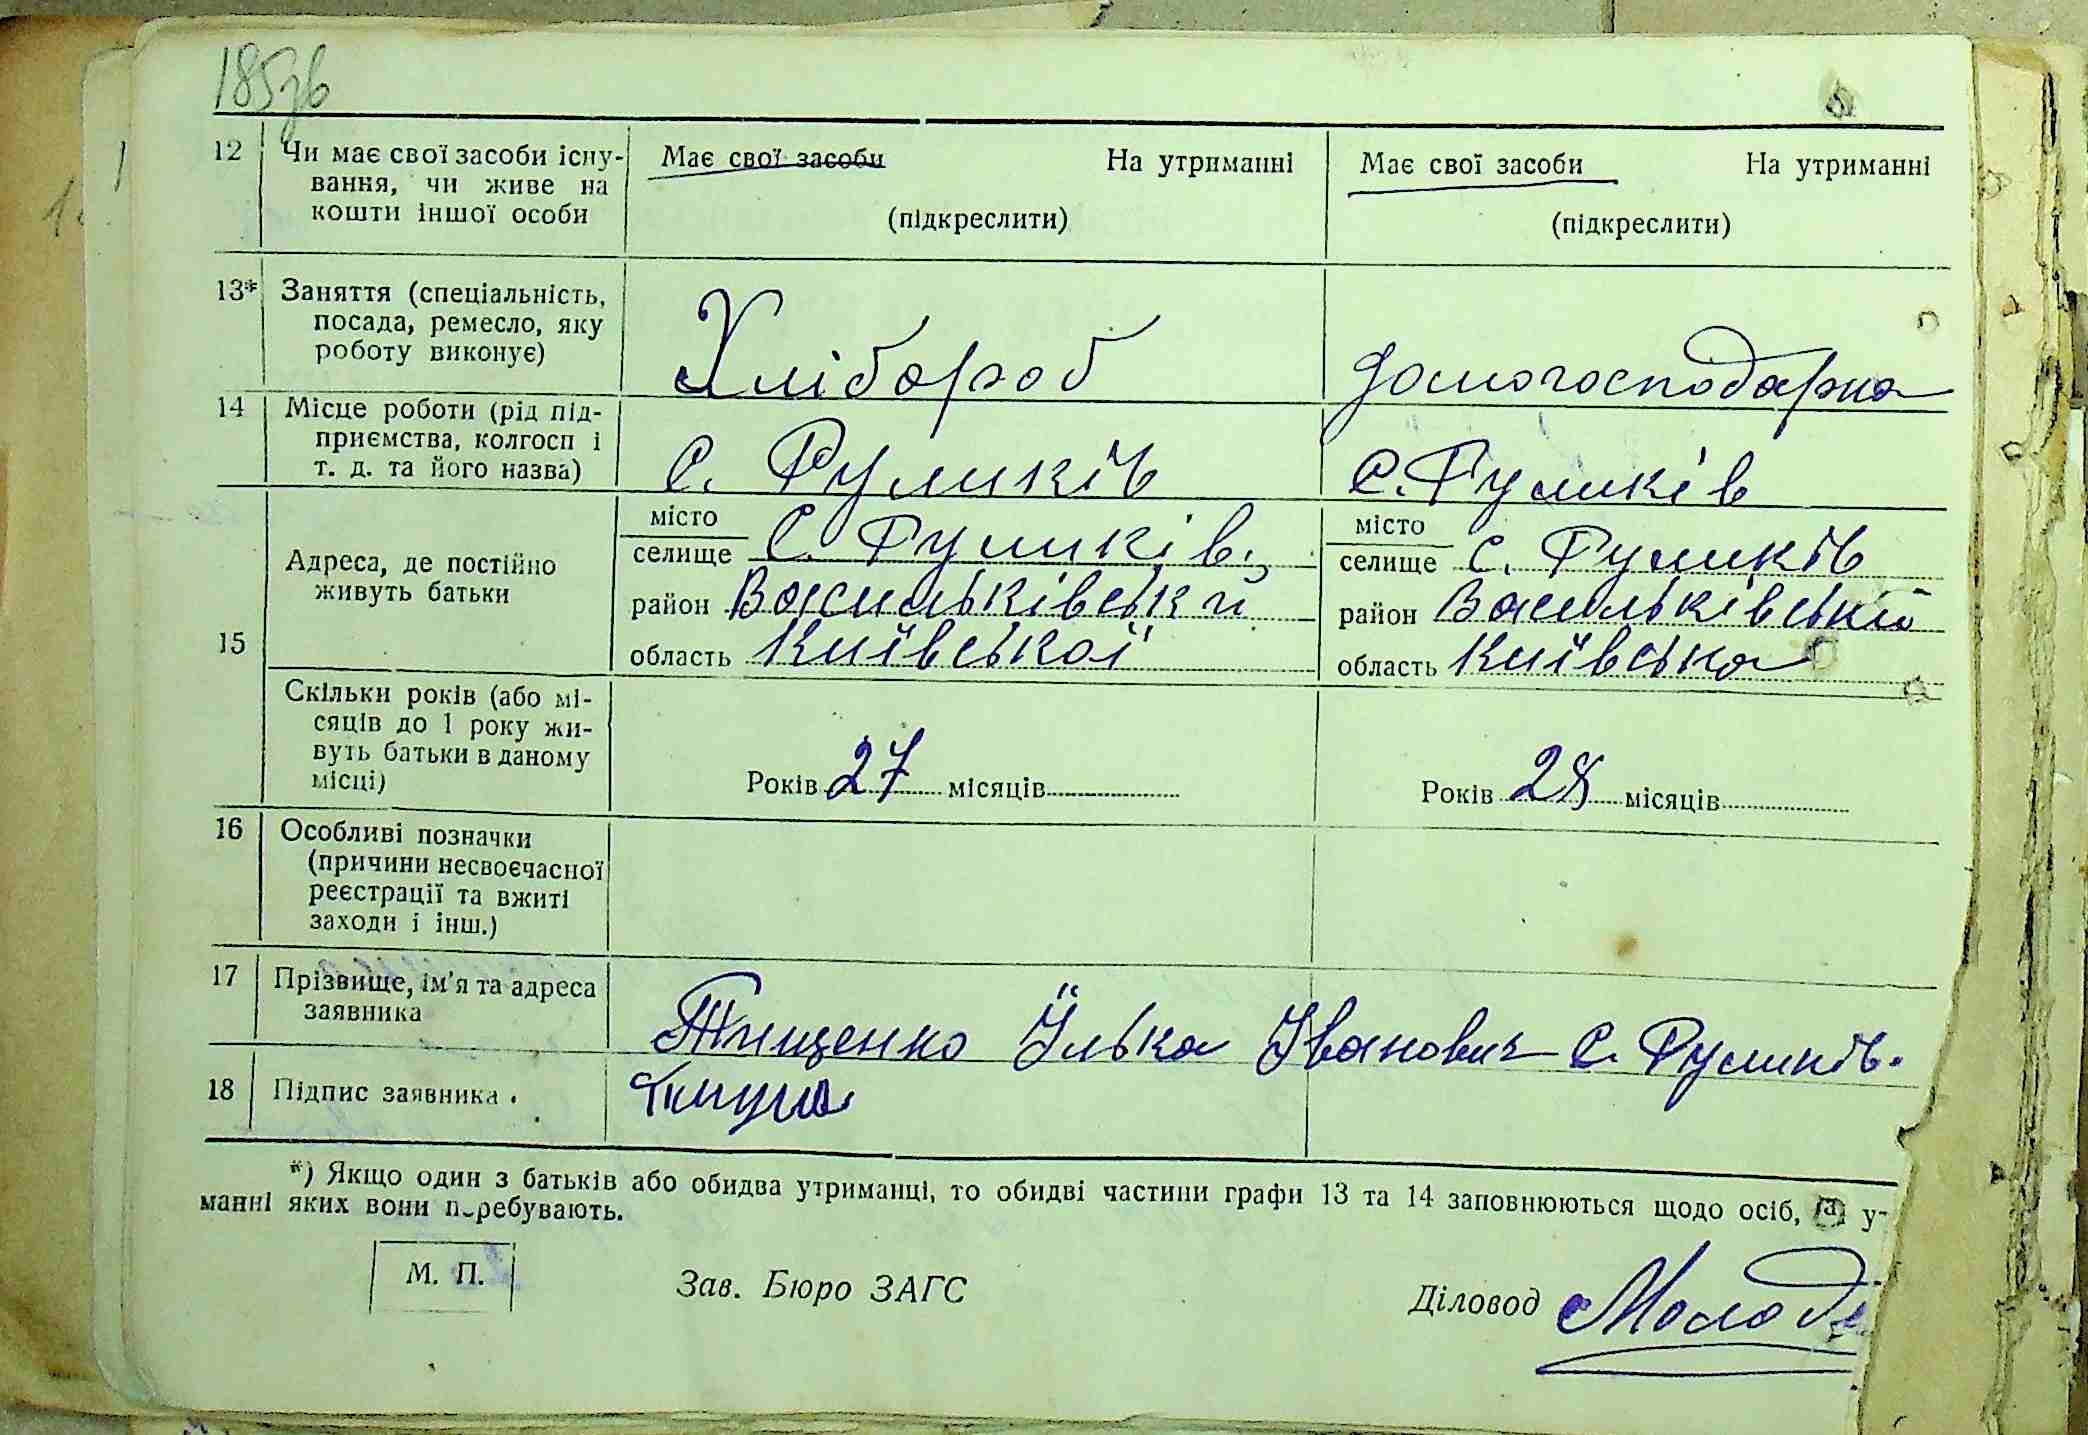 185зв
12 Чи має свої засоби існу- Має свої засоби На утриманні Має свої засоби На утриманні
вання, чи живе на
кошти іншої особи (підкреслити) (підкреслити)
13* Заняття (спеціальність,
посада, ремесло, яку
роботу виконує) Хлібороб домогосподарка
14 Місце роботи (рід під-
приємства, колгосп і
т. д. та його назва) С. Руликів С. Руликів
15 Адреса, де постійно
живуть батьки
місто
селище С. Руликів, місто
селище С. Руликів
район Васильківськи район Васильківській
область Київської область Київська
Скільки років (або мі-
сяців до 1 року жи-
вуть батьки в даному
місці) Років 27 місяців Років 28 місяців
16 Особливі позначки
(причини несвоєчасної
реєстрації та вжиті
заходи і інш.)
17 Прізвище, ім'я та адреса
заявника Тищенко Їлька Іванович С. Руликів.
18 Підпис заявника
*) Якщо один з батьків або обидва утриманці, то обидві частини графи 13 та 14 заповнюються щодо осіб, на у-
манні яких вони перебувають.
М. П. Зав. Бюро ЗАГС Діловод